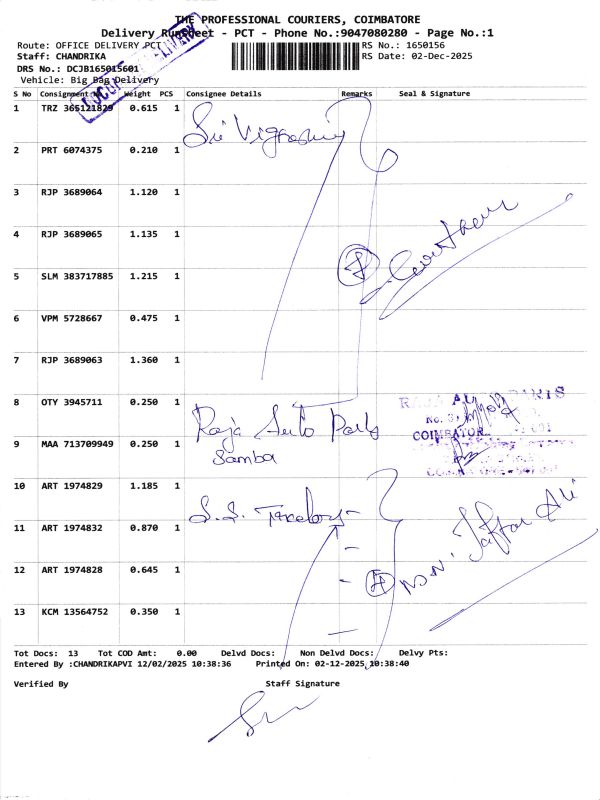 THE PROFESSIONAL COURIERS, COIMBATORE
Delivery RunSheet - PCT - Phone No.:9047080280 - Page No.:1
Route: OFFICE DELIVERY PCT
RS No.: 1650156
Staff: CHANDRIKA
RS Date: 02-Dec-2025
DRS No.: DCJB165015601
Vehicle: Big Bag Delivery
DELIVERY
S No Consignment Weight PCS Consignee Details Remarks Seal & Signature
1 TRZ 365121829 0.615 1
Sri
2 PRT 6074375 0.210 1
3 RJP 3689064 1.120 1
4 RJP 3689065 1.135 1
5 SLM 383717885 1.215 1
6 VPM 5728667 0.475 1
7 RJP 3689063 1.360 1
8 OTY 3945711 0.250 1
Raja Auto Parts
COIMBATORE
9 MAA 713709949 0.250 1
Samba
10 ART 1974829 1.185 1
S.S.
11 ART 1974832 0.870 1
Jaffar Ali
12 ART 1974828 0.645 1
13 KCM 13564752 0.350 1
Tot Docs: 13 Tot COD Amt: 0.00 Delvd Docs: Non Delvd Docs: Delvy Pts:
Entered By :CHANDRIKAPVI 12/02/2025 10:38:36 Printed On: 02-12-2025 10:38:40
Verified By Staff Signature